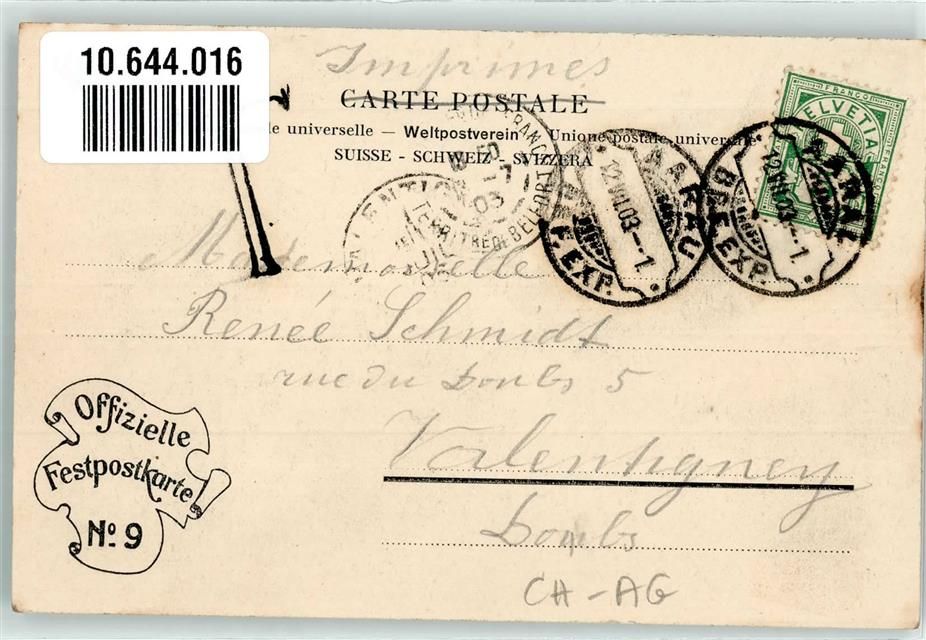 10.644.016
Imprimes
CARTE POSTALE
le universelle — Weltpostverein — Unione postale universale
SUISSE - SCHWEIZ - SVIZZERA
FRANCO
HELVETIA
AARAU
22.VII.03.-1
BRF. EXP.
AARAU
22.VII.03.-1
BRF. EXP.
03
TERRIT.RE DE BELFORT
Mademoiselle
Renée Schmidt
rue du Doubs 5
Valentigney
Doubs
Offizielle
Festpostkarte
No. 9
CH - AG